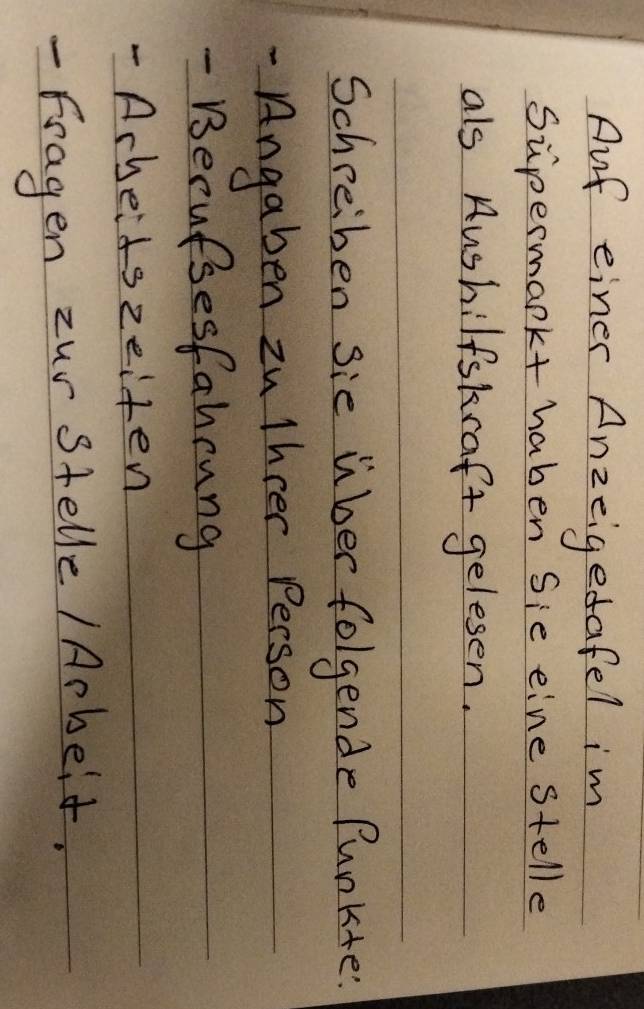 Auf einer Anzeigetafel im
Süpermarkt haben Sie eine Stelle
als Aushilfskraft gelesen.
Schreiben Sie über folgende Punkte:
- Angaben zu Ihrer Person
- Berufsesfahrung
- Arbeitszeiten
- Fragen zur Stelle / Arbeit.